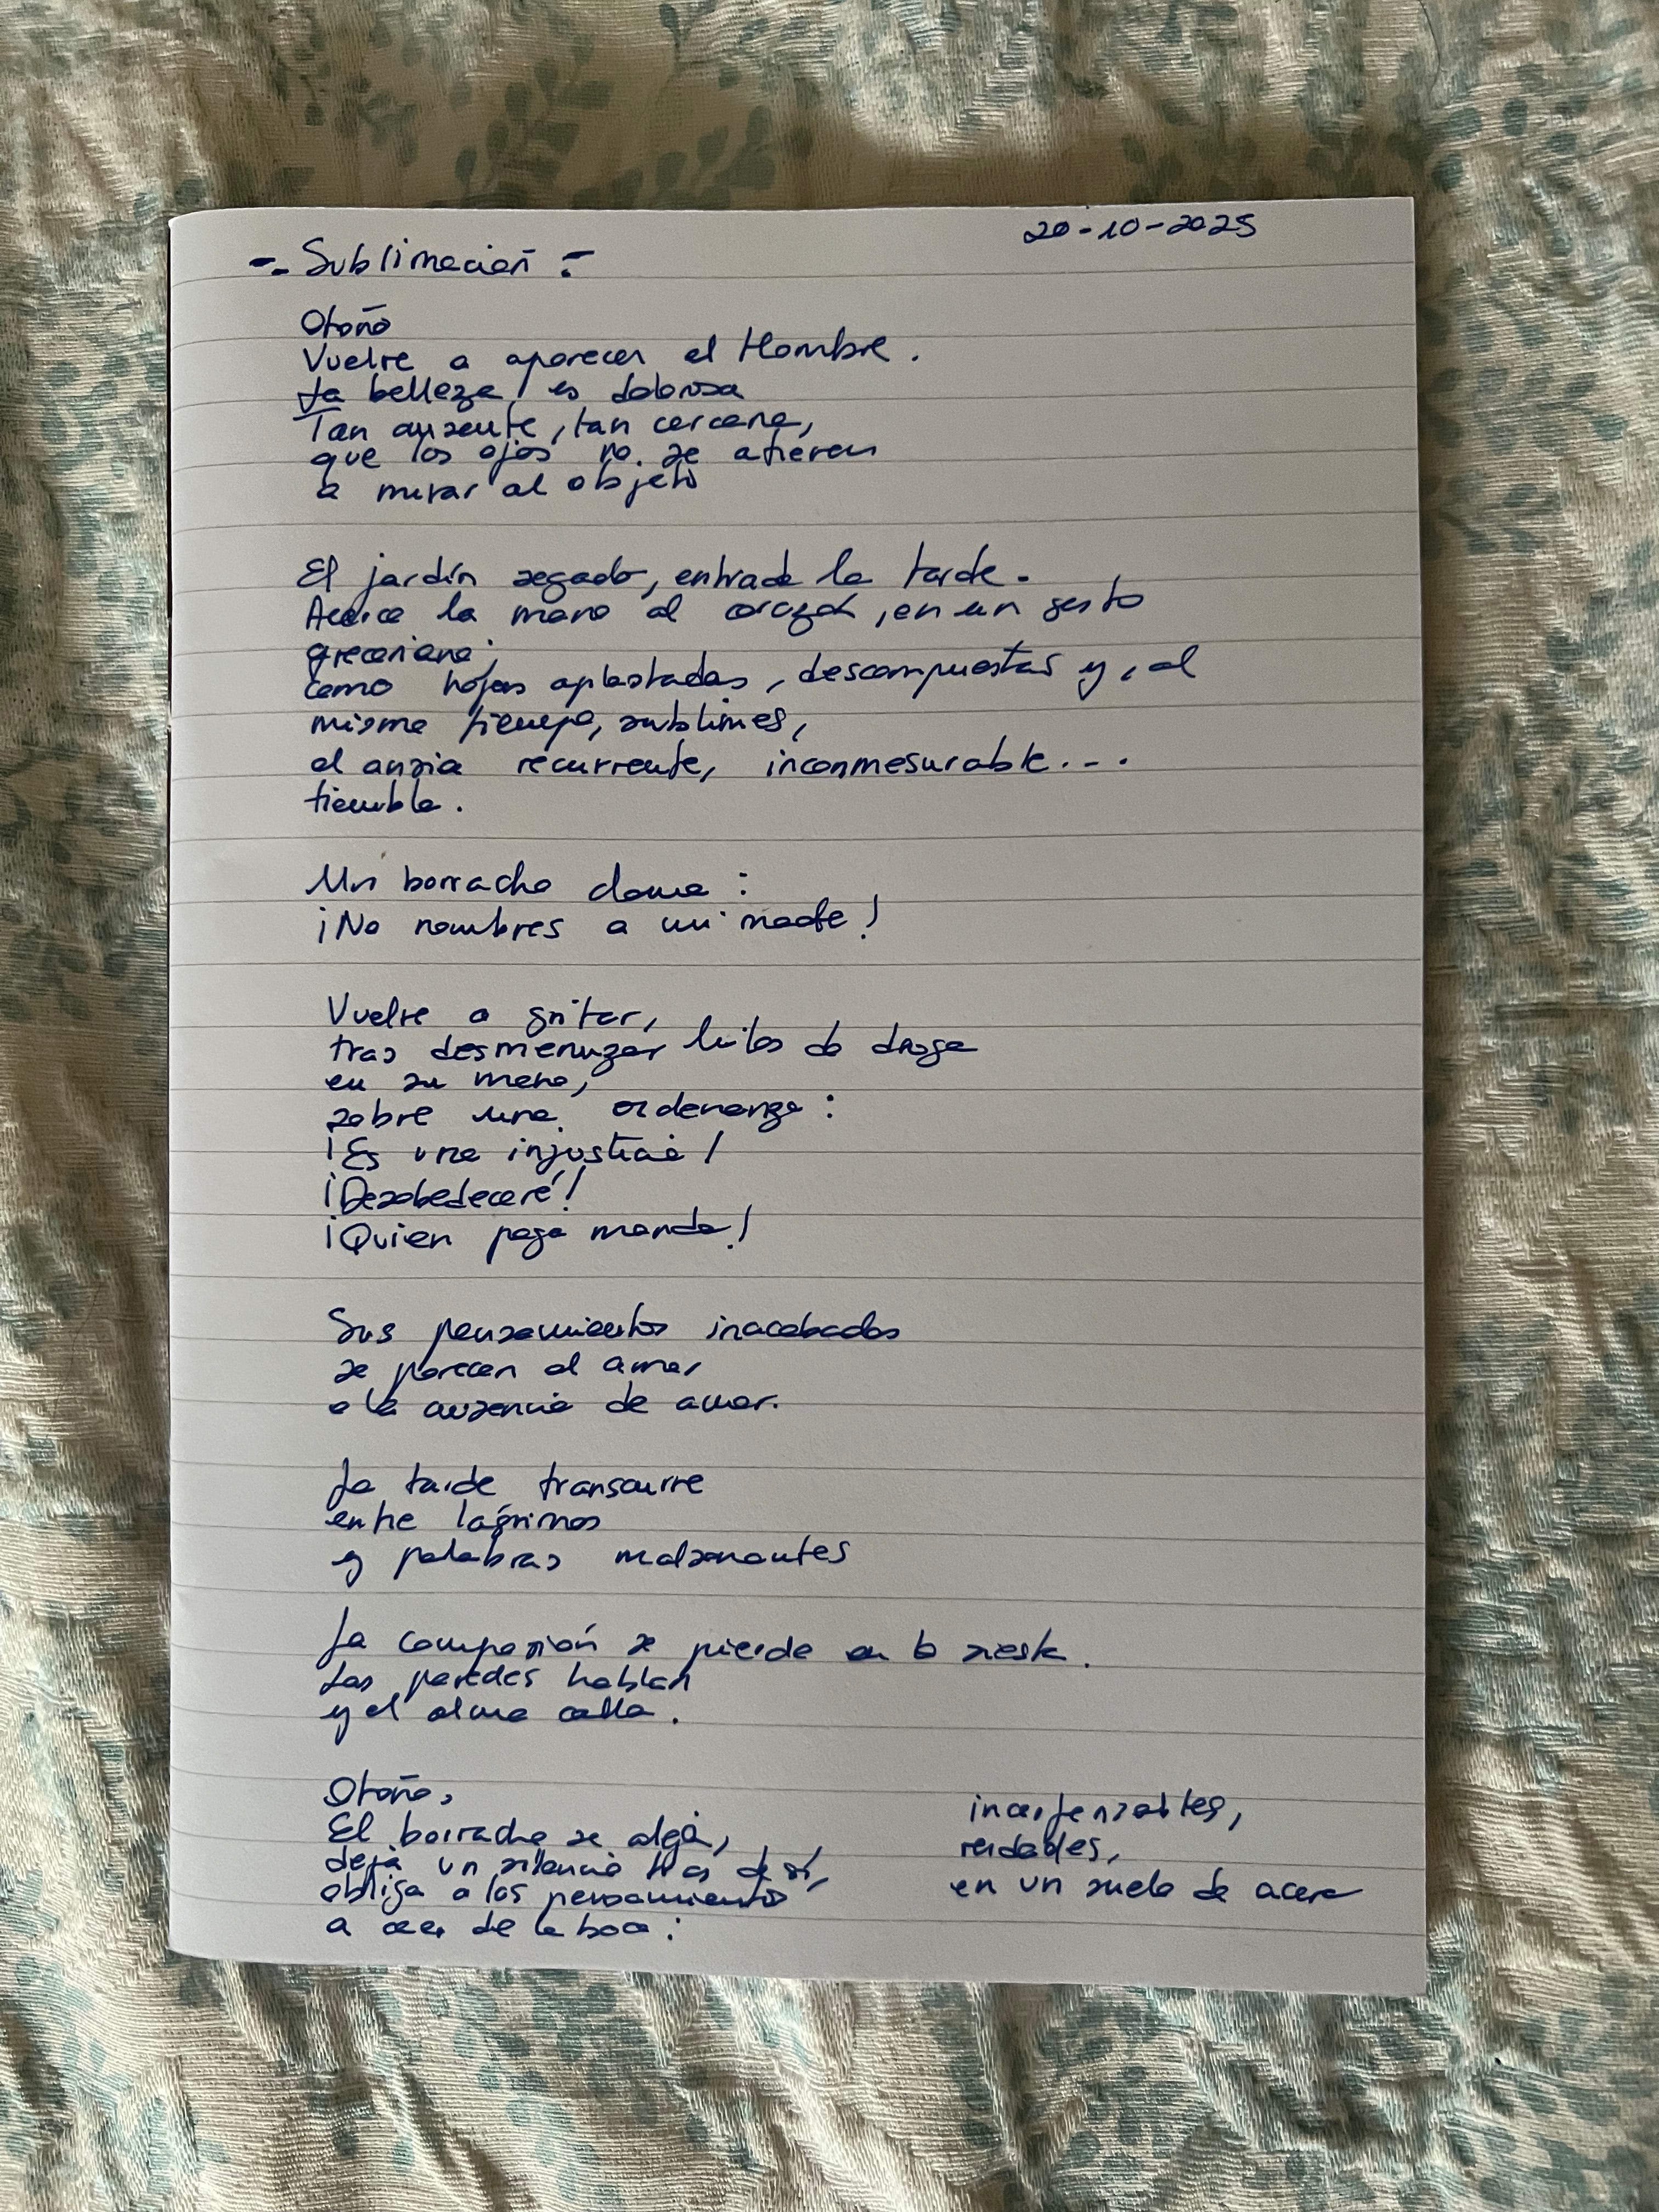 20-10-2025
-. Sublimación .-
Otoño
Vuelve a aparecer el Hombre.
La belleza es dolorosa
Tan ausente, tan cercana,
que los ojos no se atreven
a mirar al objeto
El jardín segado, entrada la tarde.
Acerco la mano al corazón, en un gesto
grecoriano;
como hojas aplastadas, descompuestas y, al
mismo tiempo, sublimes,
el ansia recurrente, inconmesurable...
tiembla.
Un borracho clama:
¡No nombres a mi madre!
Vuelve a gritar,
tras desmenuzar hilos de droga
en su mano,
sobre una ordenanza:
¡Es una injusticia!
¡Desobedeceré!
¡Quien paga manda!
Sus pensamientos inacabados
se parecen al amor,
a la ausencia de amor.
La tarde transcurre
entre lágrimas
y palabras malsonantes
La compasión se pierde en la siesta.
Las paredes hablan
y el alma calla.
Otoño,
El borracho se aleja,
deja un silencio tras de sí,
obliga a los pensamientos
a caer de la boca:
incompensables,
en un suelo de acero